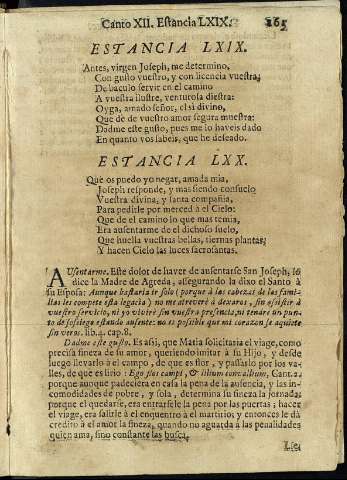 Canto XII. Estancia LXIX. 265
ESTANCIA LXIX.
Antes, virgen Joseph, me determino,
Con gusto vuestro, y con licencia vuestra;
De baculo servir en el camino
A vuestra ilustre, venturosa diestra:
Oyga, amado señor, el si divino,
Que de de vuestro amor segura muestra:
Dadme este gusto, pues me lo haveis dado
En quanto vos sabeis, que he deseado.
ESTANCIA LXX.
Què os puedo yo negar, amada mia,
Joseph responde, y mas siendo consuelo
Vuestra divina, y santa compañia,
Para pedirle por merced à el Cielo:
Que de el camino lo que mas temia,
Era ausentarme de el dichoso suelo,
Que huella vuestras bellas, tiernas plantas;
Y hacen Cielo las luces sacrosantas.
AUsentarme. Este dolor de haver de ausentarse San Joseph, lo
dice la Madre de Agreda, assegurando la dixo el Santo à
su Esposa: Aunque bastaria ir solo (porque à las cabezas de las fami-
lias les compete esta legacia) no me atreverè à dexaros, sin assistir à
vuestro servicio, ni yo vivirè sin vuestra presencia, ni tendrè un pun-
to de sosiego estando ausente: no es possible que mi corazon se aquiete
sin veros. lib. 4. cap. 8.
Dadme este gusto. Es assi, que Maria solicitaria el viage, como
precisa fineza de su amor, queriendo imitar à su Hijo, y desde
luego llevarlo à el campo, de que es flor, y passarlo por los va-
lles, de que es lirio: Ego flos campi, & lilium convallium, Cant. 2.
porque aunque padeciera en casa la pena de la ausencia, y las in-
comodidades de pobre, y sola, determina su fineza la jornada:
porque el quedarse, era entrarsele la pena por las puertas; hacer
el viage, era salirle à el encuentro à el martirio; y entonces le dà
credito à el amor la fineza, quando no aguarda à las penalidades
quien ama, sino constante las busca.